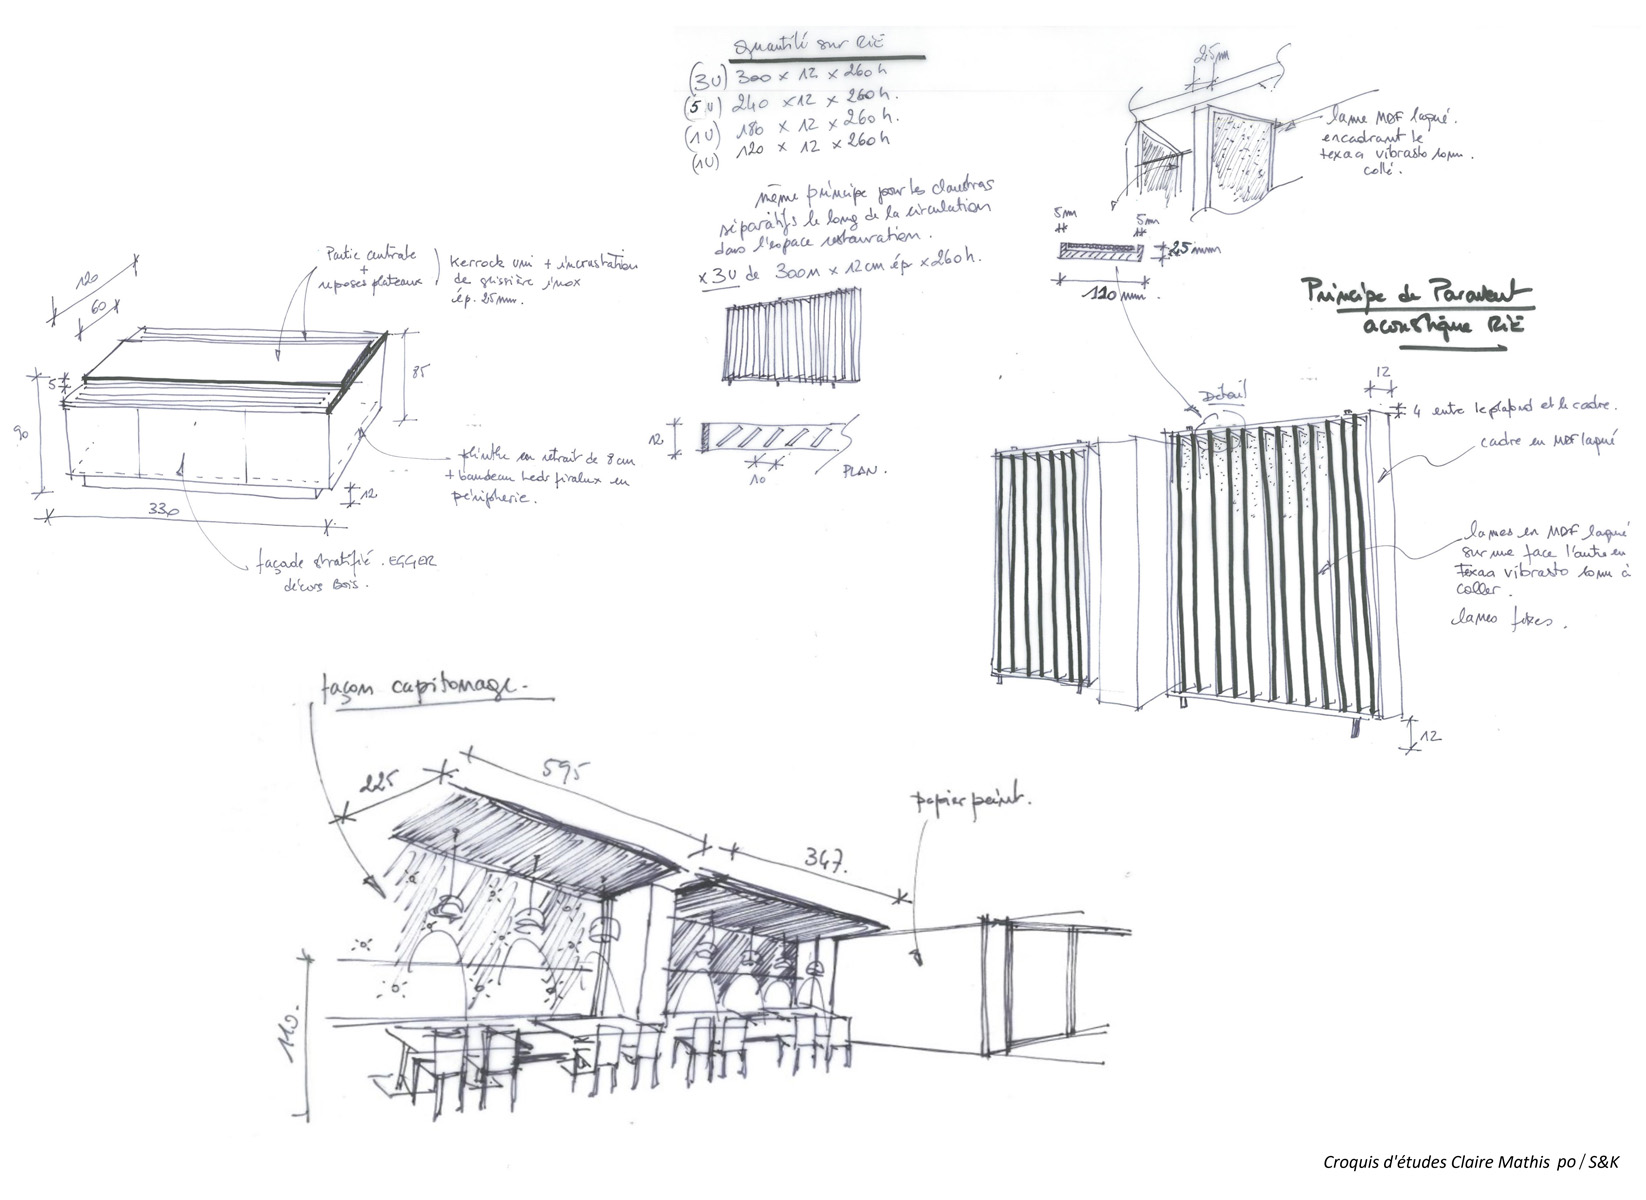 Quantité sur RiE
(3U) 300 x 12 x 260h
(5U) 240 x 12 x 260h.
(1U) 180 x 12 x 260h.
(1U) 120 x 12 x 260h
même principe pour les claustras
séparatifs le long de la circulation
dans l'espace restauration.
x 3U de 300 x 12cm ép x 260h.
12
10
PLAN.
120
60
5
90
85
12
330
Partie centrale
+
reposes plateaux
Kerrock uni + incrustation
de glissière inox
ép. 25mm.
plinthe en retrait de 8cm
+ bandeau Leds en
périphérie.
façade stratifié. EGGER
décors Bois.
25mm
lame MDF laqué.
encadrant le
texaa vibrasto 10mm.
collé.
5mm
5mm
25mm
120mm.
Principe de Paravent
acoustique RiE
Détail
12
4 entre le plafond et le cadre.
cadre en MDF laqué
lames en MDF laqué
sur une face l'autre en
Texaa vibrasto 10mm à
coller.
lames fixes.
12
façon capitonage.
225
595
347.
papier peint.
110.
Croquis d'études Claire Mathis po / S&K